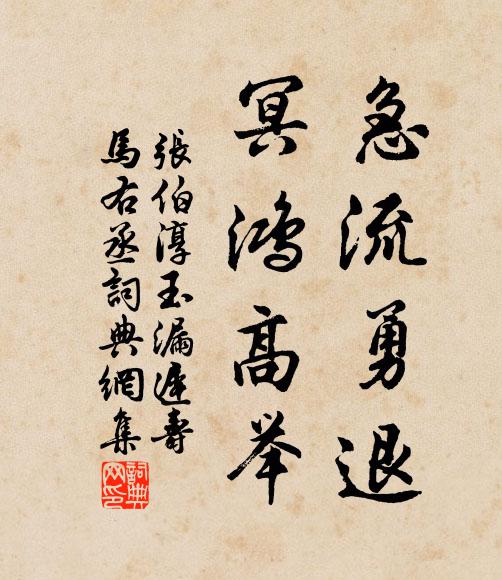 急流勇退
冥鸿高举
張伯淳玉漏遲壽
馬右丞詞典網集
詞典網印